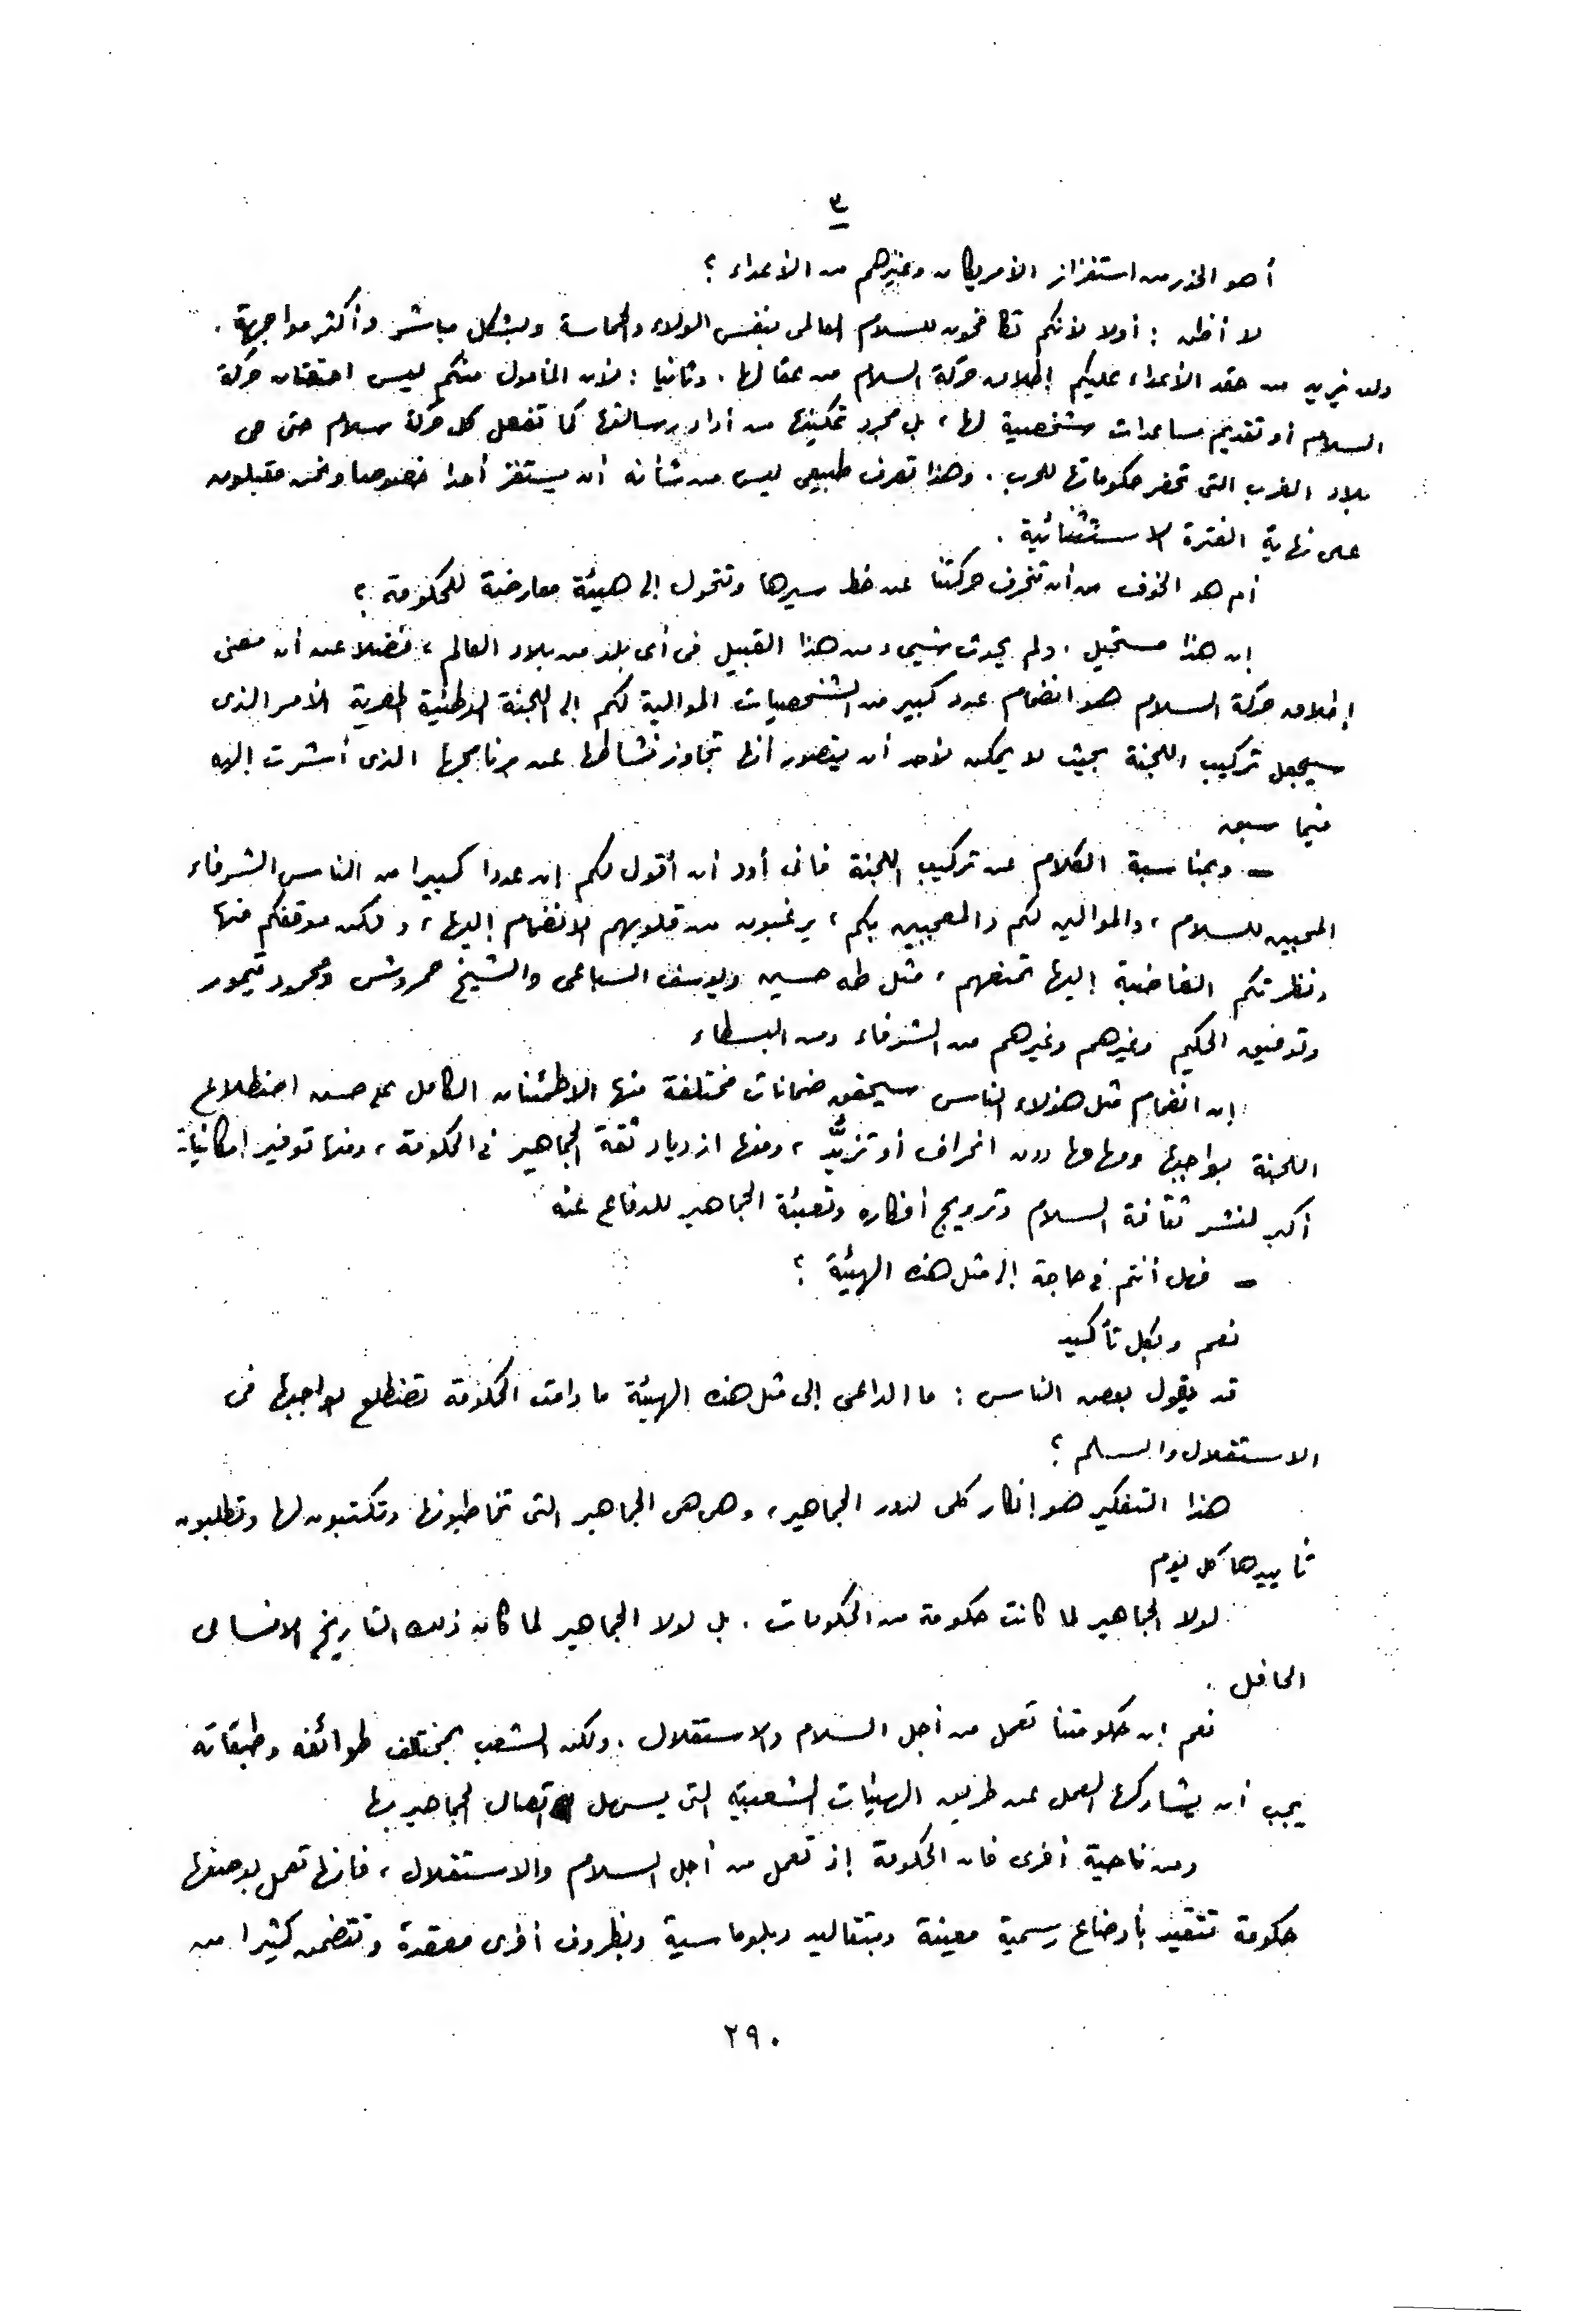 ٣
أهو الحذر من استفزاز الأمريكان وغيرهم من الأعداء ؟
لا أظن : أولا لأنكم تكافحون للسلام العالمى بنفس الولاء والحماسة وبشكل مباشر وأكثر مواجهة .
ولن يزيد من حقد الأعداء عليكم إطلاق حركة السلام من عقالها . وثانيا : لأن المأمول منكم ليس احتضان حركة
السلام أو تقديم مساعدات شخصية لها ، بل مجرد تمكينها من أداء رسالتها كما تفعل كل حركة سلام حتى فى
بلاد الغرب التى تحضر حكوماتها للحرب . وهذا تصرف طبيعى ليس من شأنه أن يستفز أحدا خصوصا ونحن مقبلون
على نهاية الفترة الاستثنائية .
أم هو الخوف من أن تنحرف حركتنا عن خط سيرها وتتحول إلى هيئة معارضة للحكومة ؟
إن هذا مستحيل . ولم يحدث شيء من هذا القبيل فى أى بلد من بلاد العالم ، فضلا عن أن معنى
إطلاق حركة السلام هو انضمام عدد كبير من الشخصيات الموالية لكم إلى اللجنة الوطنية المصرية الأمر الذى
سيجعل تركيب اللجنة بحيث لا يمكن لأحد أن يتصور أنها تجاوز نشاطها عن برنامجها الذى أشرت إليه
فيما سبق
– وبمناسبة الكلام عن تركيب اللجنة فانى أود أن أقول لكم إن عددا كبيرا من الناس الشرفاء
المحبين للسلام ، والموالين لكم والمعجبين بكم ، يرغبون من قلوبهم الانضمام إليها ، ولكن موقفكم منها
ونظرتكم الغاضبة إليها تمنعهم ، مثل طه حسين ويوسف السباعى والشيخ حمروش ومحمود تيمور
وتوفيق الحكيم وغيرهم وغيرهم من الشرفاء ومن البسطاء
إن انضمام مثل هؤلاء الناس سيحقق ضمانات مختلفة منها الاطمئنان الكامل على حسن اضطلاع
اللجنة بواجبها ومهامها دون انحراف أو تزيُّد ، ومنها ازدياد ثقة الجماهير فى الحكومة ، ومنها توفير إمكانيات
أكبر لنشر ثقافة السلام وترويج أفكاره وتعبئة الجماهير للدفاع عنه
– فهل أنتم فى حاجة إلى مثل هذه الهيئة ؟
نعم وبكل تأكيد
قد يقول بعض الناس : ما الداعى إلى مثل هذه الهيئة ما دامت الحكومة تضطلع بواجبها فى
الاستقلال والسلم ؟
هذا التفكير هو إنكار كلى لدور الجماهير ، وهى هى الجماهير التى تخاطبونها وتكتبون لها وتطلبون
تأييدها كل يوم
لولا الجماهير لما كانت حكومة من الحكومات . بل لولا الجماهير لما كان ذلك التاريخ الانسانى
الحافل .
نعم إن حكومتنا تعمل من أجل السلام والاستقلال . ولكن الشعب بمختلف طوائفه وطبقاته
يجب أن يشاركها العمل عن طريق الهيئات الشعبية التى يسهل اتصال الجماهير بها
ومن ناحية أخرى فان الحكومة إذ تعمل من أجل السلام والاستقلال ، فانها تعمل بوصفها
حكومة تتقيد بأوضاع رسمية معينة وبتقاليد دبلوماسية وبظروف أخرى معقدة وتتضمن كثيرا من
٢٩٠